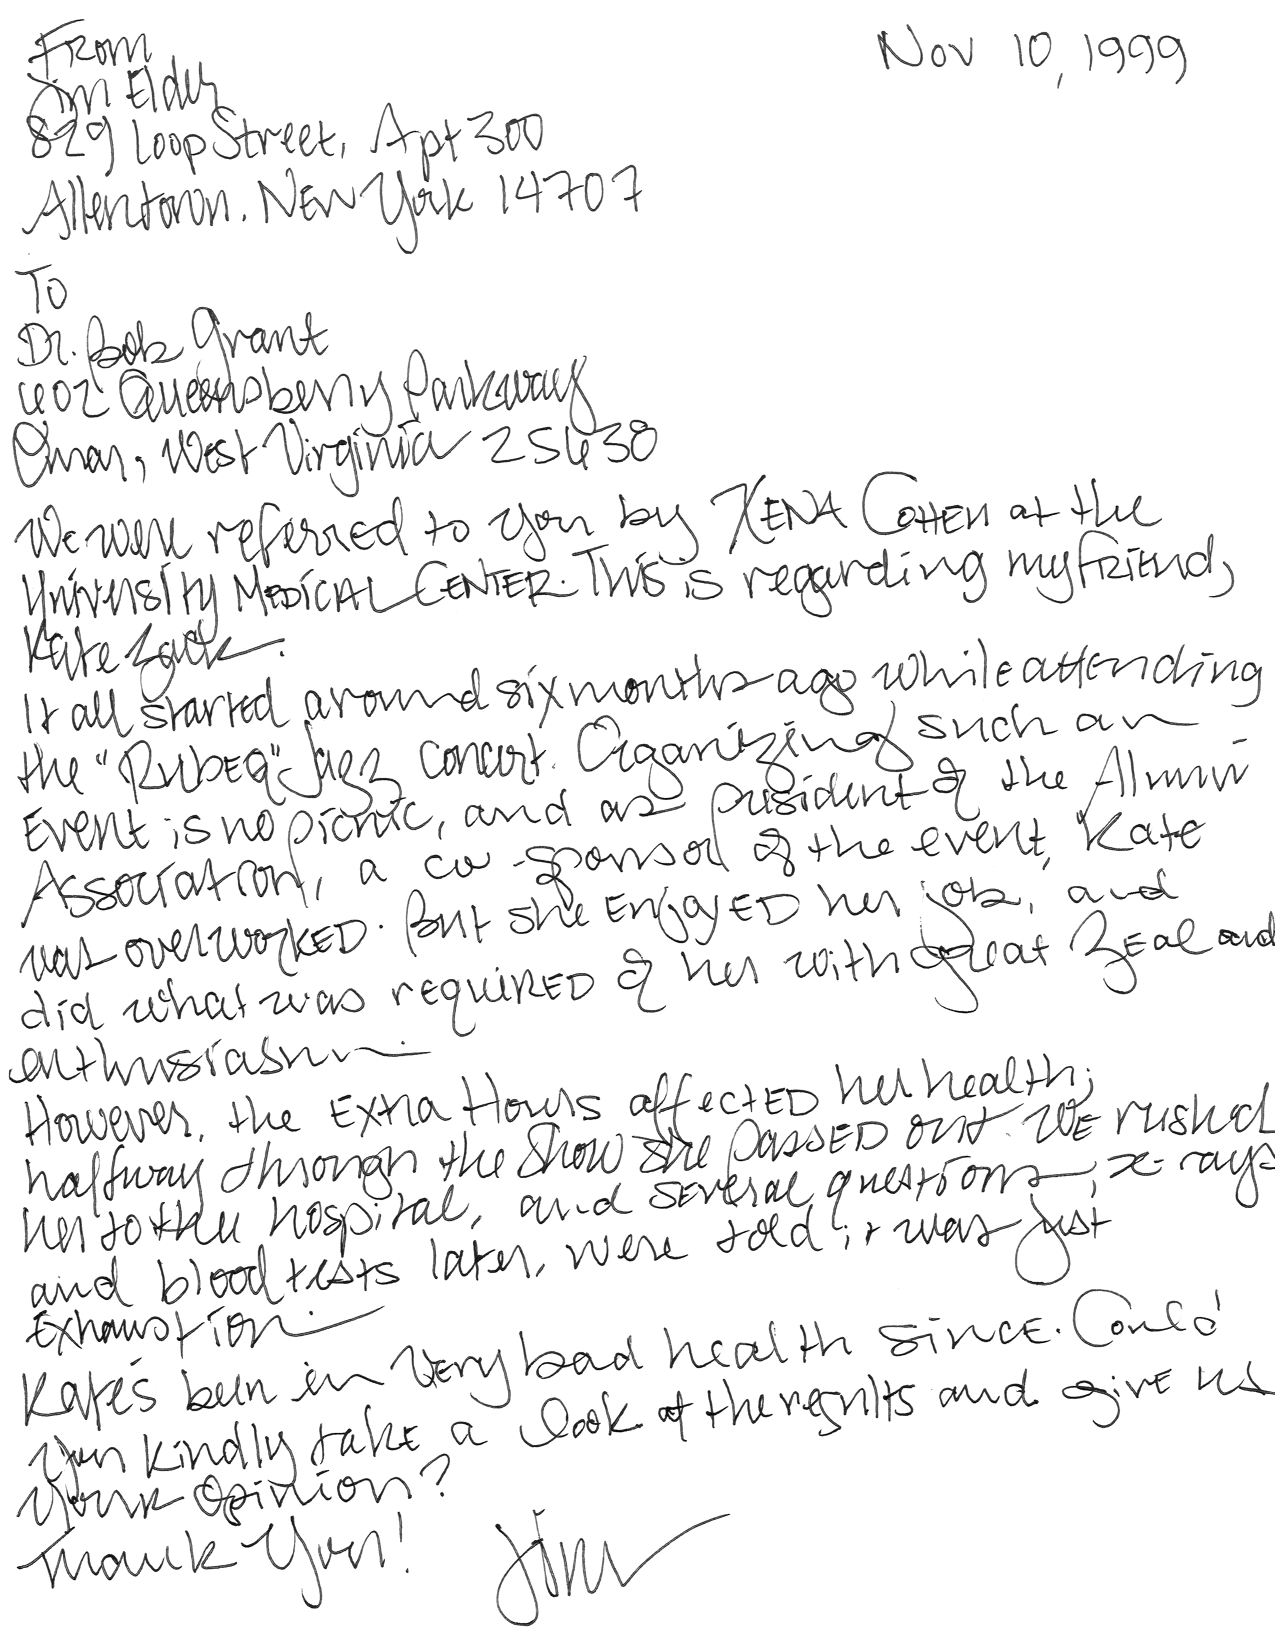 From
Nov 10, 1999
Jim Elder
829 Loop Street, Apt 300
Allentown, New York 14707
To
Dr. Bob Grant
602 Queensberry Parkway
Omar, West Virginia 25638
We were referred to you by Xena Cohen at the
University Medical Center. This is regarding my friend,
Kate Zack.
It all started around six months ago while attending
the "Rubeq" Jazz Concert. Organizing such an
event is no picnic, and as president of the Alumni
Association, a co-sponsor of the event, Kate
was overworked. But she enjoyed her job, and
did what was required of her with great zeal and
enthusiasm.
However, the extra hours affected her health;
halfway through the show she passed out. We rushed
her to the hospital, and several questions, x-rays
and blood tests later, were told it was just
exhaustion.
Kate's been in very bad health since. Could
you kindly take a look at the results and give us
your opinion?
Thank you!
Jim